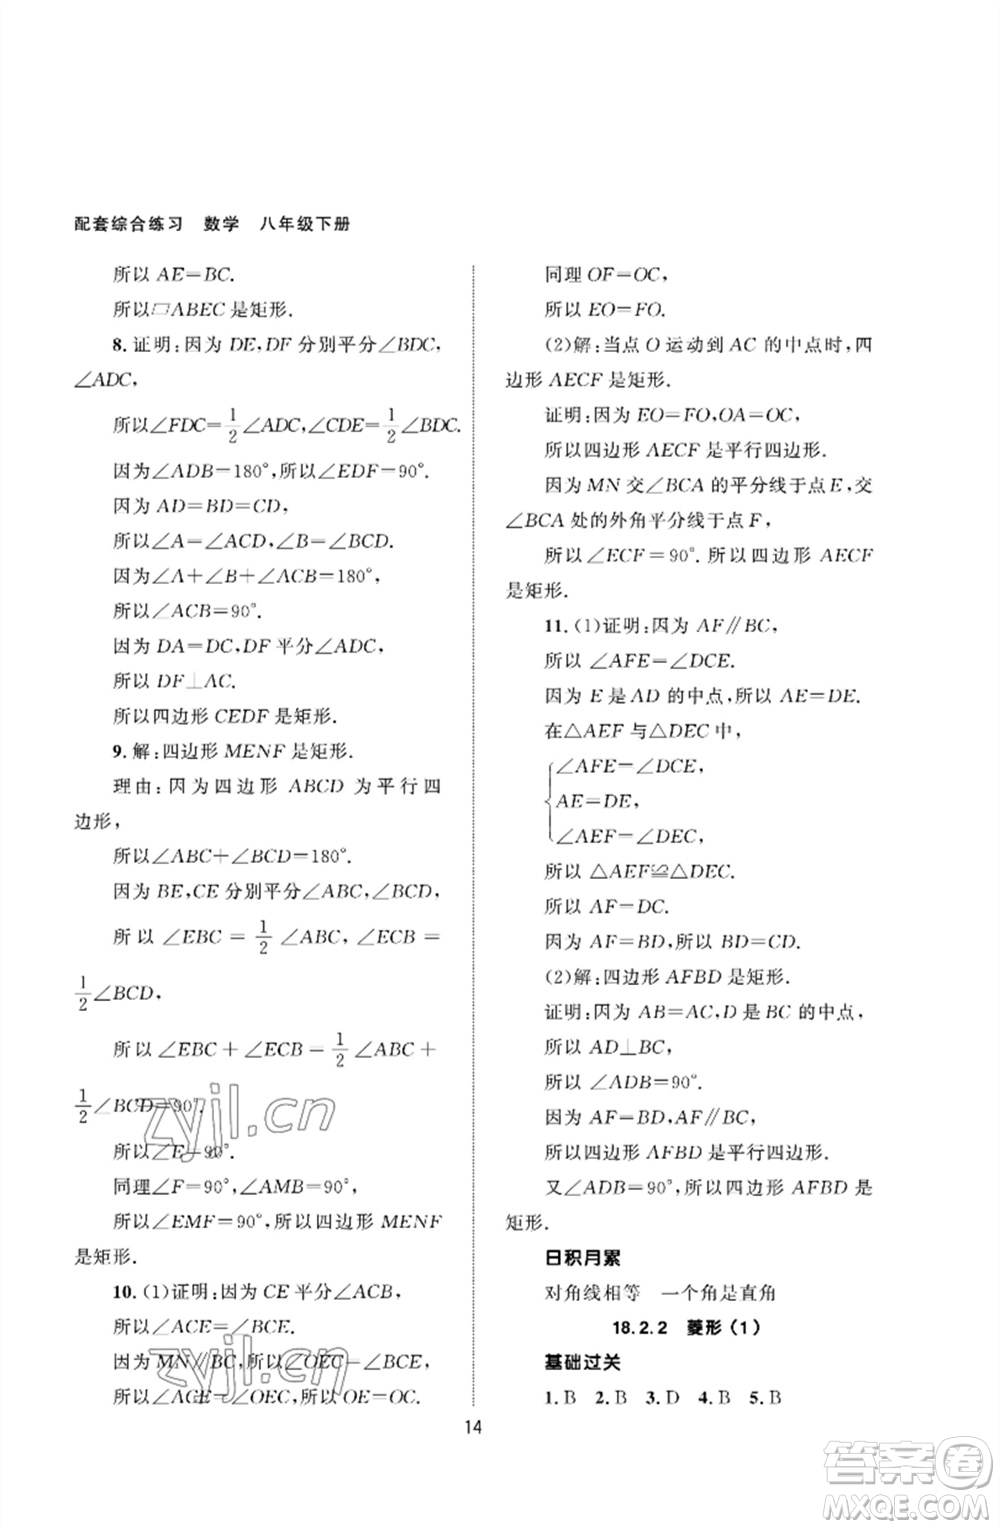 配套综合练习　数学　八年级下册
所以 AE=BC.
所以▱ABEC 是矩形.
8.证明:因为 DE,DF 分别平分∠BDC,
∠ADC,
所以∠FDC=1/2∠ADC,∠CDE=1/2∠BDC.
因为∠ADB=180°,所以∠EDF=90°.
因为 AD=BD=CD,
所以∠A=∠ACD,∠B=∠BCD.
因为∠A+∠B+∠ACB=180°,
所以∠ACB=90°.
因为 DA=DC,DF 平分∠ADC,
所以 DF⊥AC.
所以四边形 CEDF 是矩形.
9.解:四边形 MENF 是矩形.
理由:因为四边形 ABCD 为平行四
边形,
所以∠ABC+∠BCD=180°.
因为 BE,CE 分别平分∠ABC,∠BCD,
所以 ∠EBC = 1/2 ∠ABC,∠ECB =
1/2∠BCD,
所以 ∠EBC + ∠ECB = 1/2 ∠ABC +
1/2∠BCD=90°.
所以∠E=90°.
同理∠F=90°,∠AMB=90°.
所以∠EMF=90°,所以四边形 MENF
是矩形.
10.(1)证明:因为 CE 平分∠ACB,
所以∠ACE=∠BCE.
因为 MN∥BC,所以∠OEC=∠BCE.
所以∠ACE=∠OEC,所以 OE=OC.
同理 OF=OC,
所以 EO=FO.
(2)解:当点 O 运动到 AC 的中点时,四
边形 AECF 是矩形.
证明:因为 EO=FO,OA=OC,
所以四边形 AECF 是平行四边形.
因为 MN 交∠BCA 的平分线于点 E,交
∠BCA 处的外角平分线于点 F,
所以∠ECF=90°.所以四边形 AECF
是矩形.
11.(1)证明:因为 AF∥BC,
所以 ∠AFE=∠DCE.
因为 E 是 AD 的中点,所以 AE=DE.
在△AEF 与△DEC 中,
∠AFE=∠DCE,
AE=DE,
∠AEF=∠DEC,
所以 △AEF≌△DEC.
所以 AF=DC.
因为 AF=BD,所以 BD=CD.
(2)解:四边形 AFBD 是矩形.
证明:因为 AB=AC,D 是 BC 的中点,
所以 AD⊥BC.
所以 ∠ADB=90°.
因为 AF=BD,AF∥BC,
所以四边形 AFBD 是平行四边形.
又∠ADB=90°,所以四边形 AFBD 是
矩形.
日积月累
对角线相等　一个角是直角
18.2.2　菱形(1)
基础过关
1.B　2.B　3.D　4.B　5.B
14
zyjl.cn
zyjl.cn
答案圈
MXQE.COM